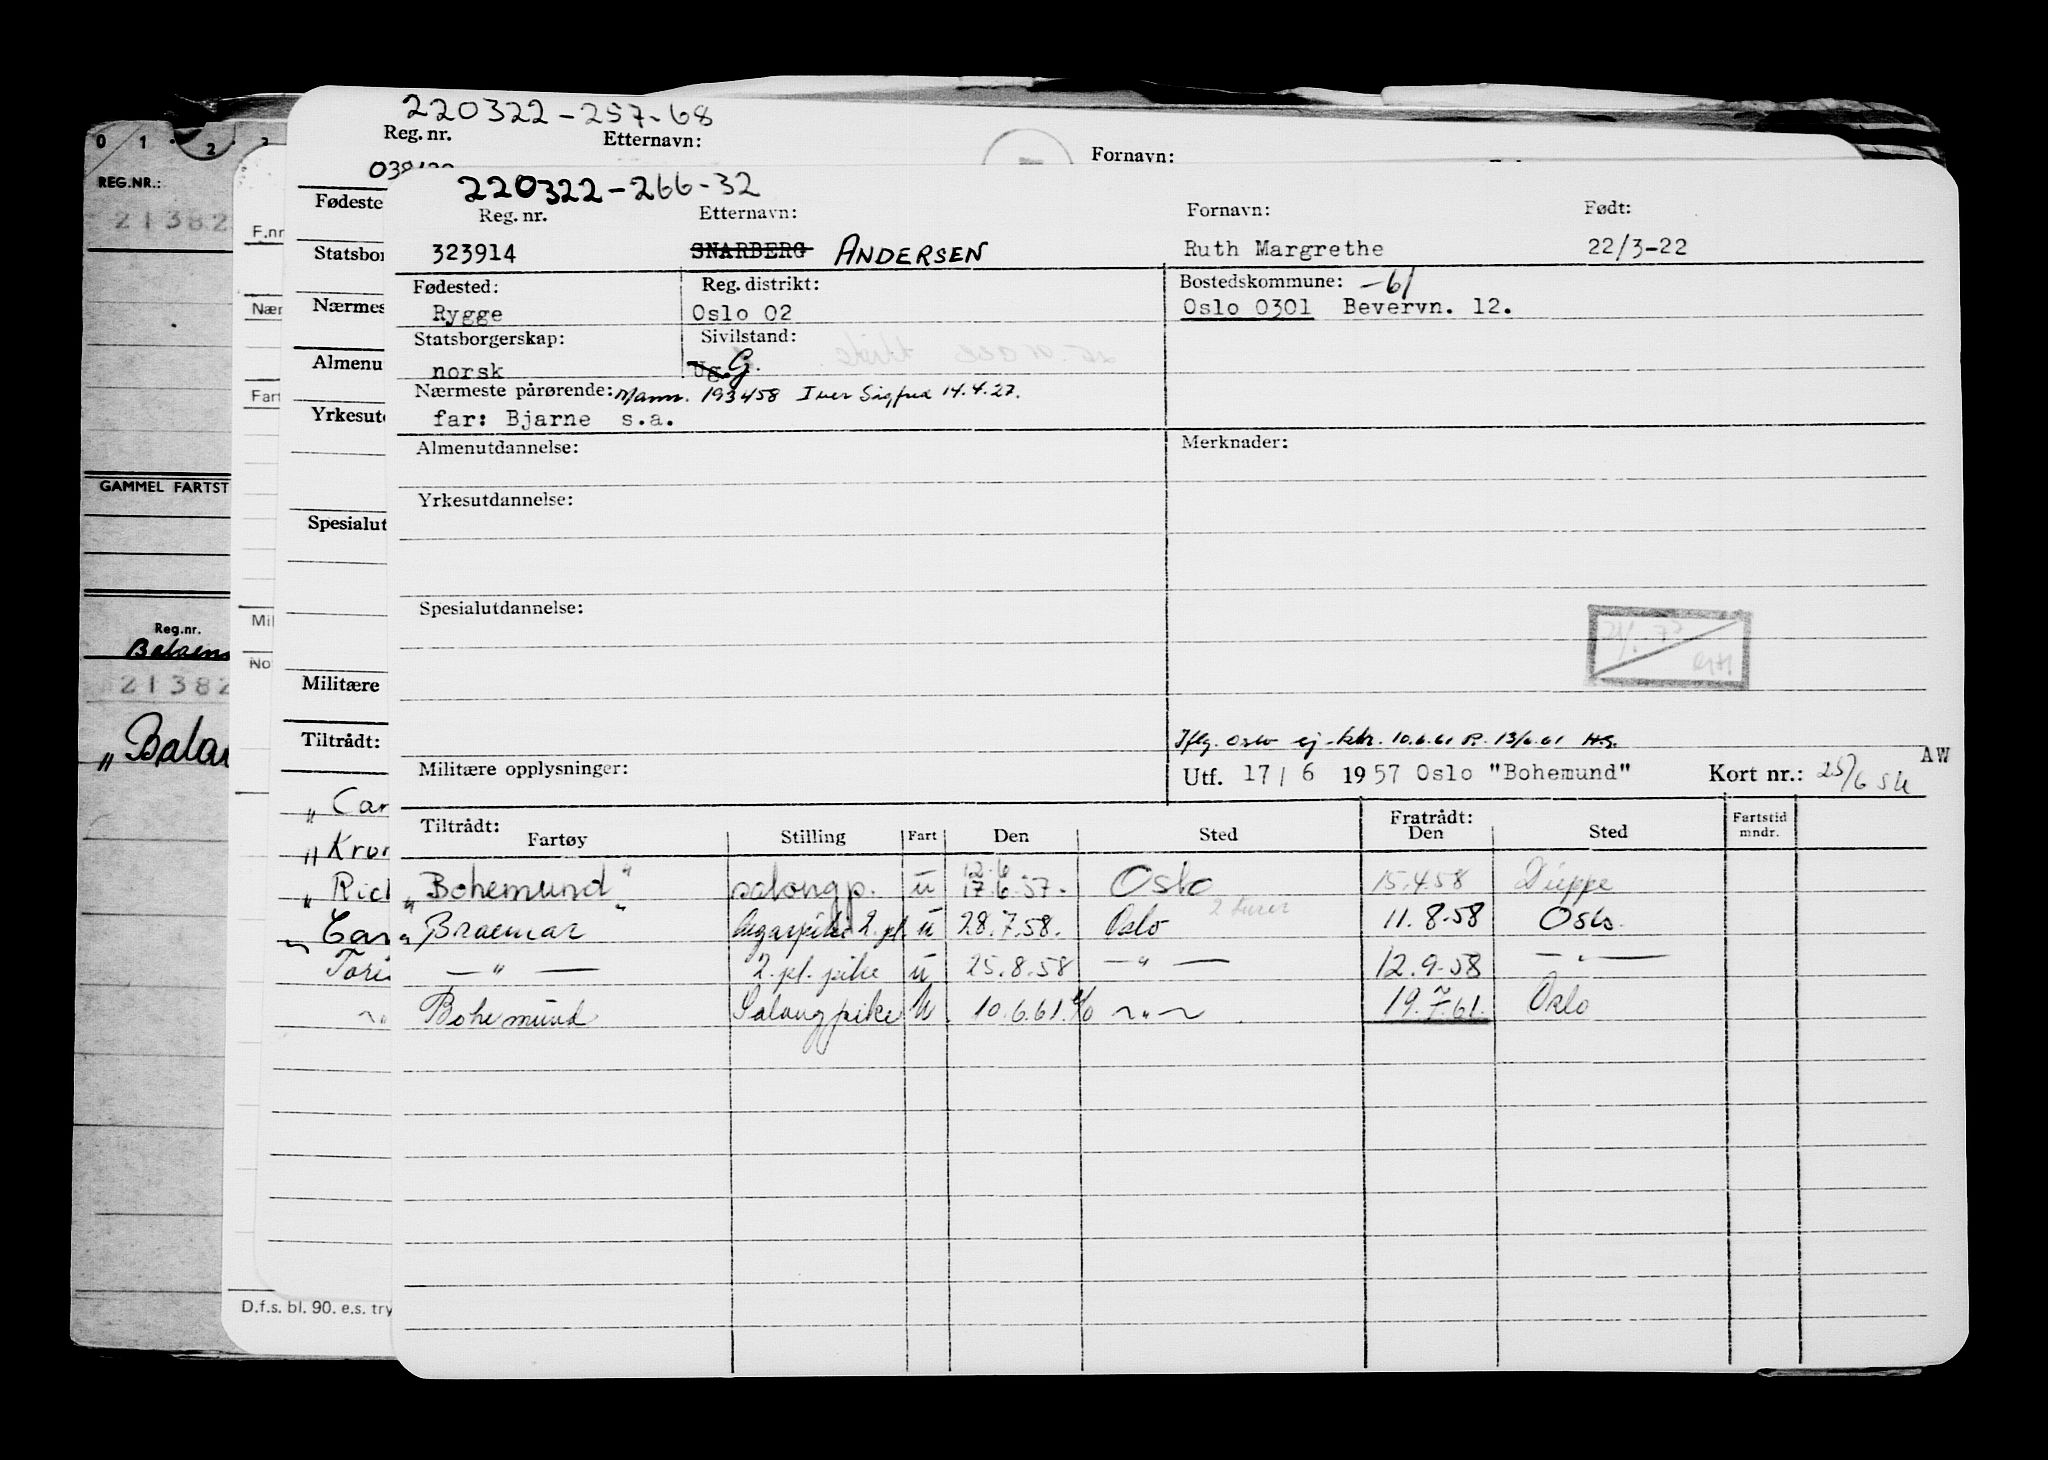 220322-257-68
Reg. nr. Etternavn: Fornavn:
0 1 2 2
REG.NR.:
21382
GAMMEL FARTST
Reg.nr.
21382
"Balae
F.nr
Nær
Fart
Mil
No
D.f.s. bl. 90. e.s. try
Fødeste
Statsbor
Nærmes
Almenu
Yrkesut
Spesialut
Militære
Tiltrådt:
" Car
" Kron
" Rich
Car
Tori
220322-266-32
Reg. nr. Etternavn: Fornavn: Født:
323914 SNARBERG ANDERSEN Ruth Margrethe 22/3-22
Fødested: Reg. distrikt: Bostedskommune: -61
Rygge Oslo 02 Oslo 0301 Bevervn. 12.
Statsborgerskap: Sivilstand:
norsk Ug. G.
Nærmeste pårørende: Mann. 193458 Iver Sigfred 14.4.27.
far: Bjarne s.a.
Almenutdannelse: Merknader:
Yrkesutdannelse:
Spesialutdannelse:
Iflg. Oslo ej ktr. 10.6.61 P. 13/6.61 H.G.
Militære opplysninger: Utf. 17/6 1957 Oslo "Bohemund" Kort nr.: 25/6 54 AW
Tiltrådt: Fratrådt: Fartstid
Fartøy Stilling Fart Den Sted Den Sted mndr.
12.6
"Bohemund" salongp. u 17.6.57. Oslo 15.4.58 Dieppe
" Braemar " Cigarpike 2. pl. u 28.7.58. Oslo 2 turer 11.8.58 Oslo
— " — 2. pl. pike u 25.8.58 — " — 12.9.58 — " —
Bohemund Salongpike U 10.6.61. ~ " ~ 19.7.61. Oslo